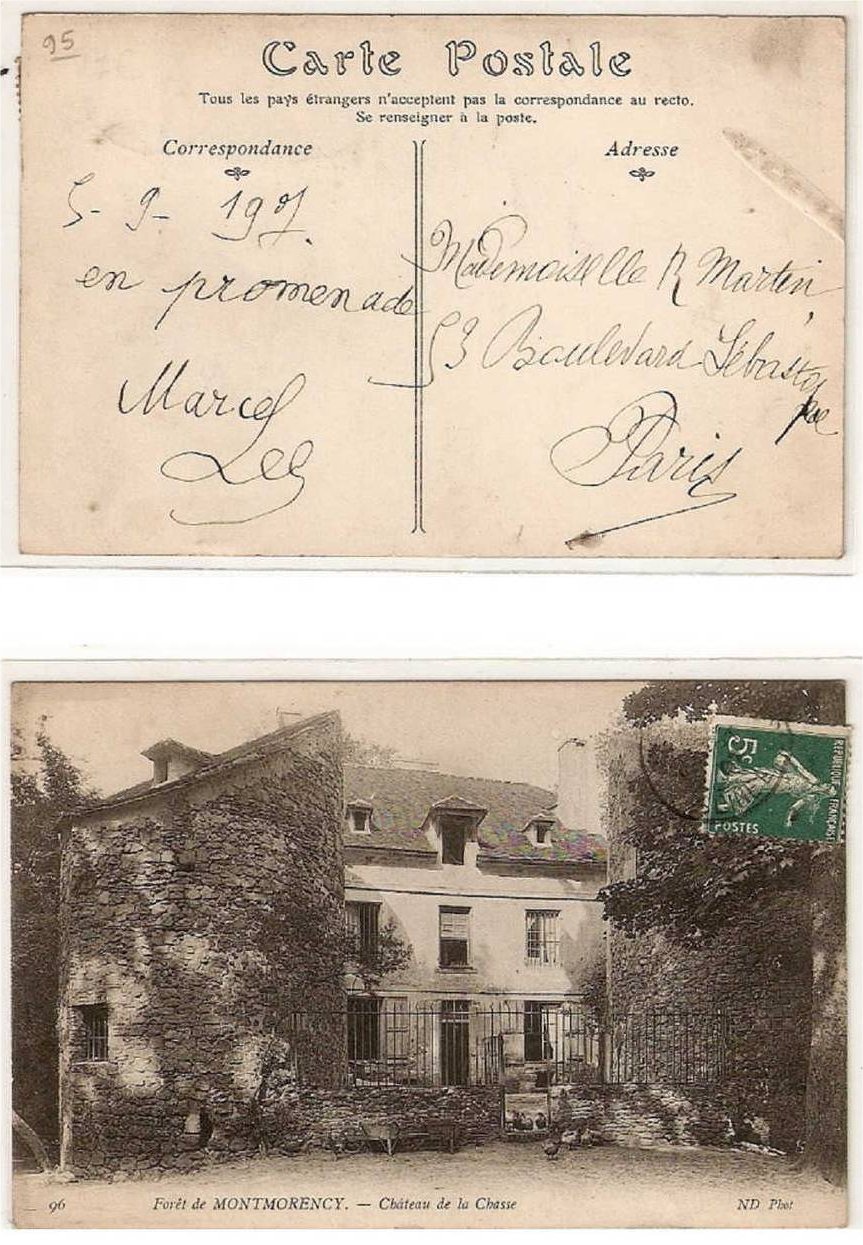 95
Carte Postale
Tous les pays étrangers n'acceptent pas la correspondance au recto.
Se renseigner à la poste.
Correspondance
5-9-1907.
en promenade
Marcel
Adresse
Mademoiselle R Martin
53 Boulevard Sébastopol
Paris
5c
REPUBLIQUE FRANÇAISE
POSTES
96 Forêt de MONTMORENCY. — Château de la Chasse ND Phot